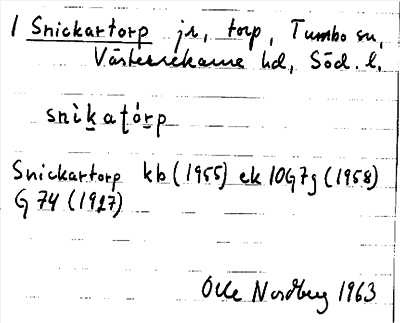 1 Snickartorp jr, torp, Tumbo sn,
Västerrekarne hd, Söd. l.
snìkaṭórp
Snickartorp kb (1955) ek 10G7g (1958)
G 74 (1927)
Olle Nordberg 1963